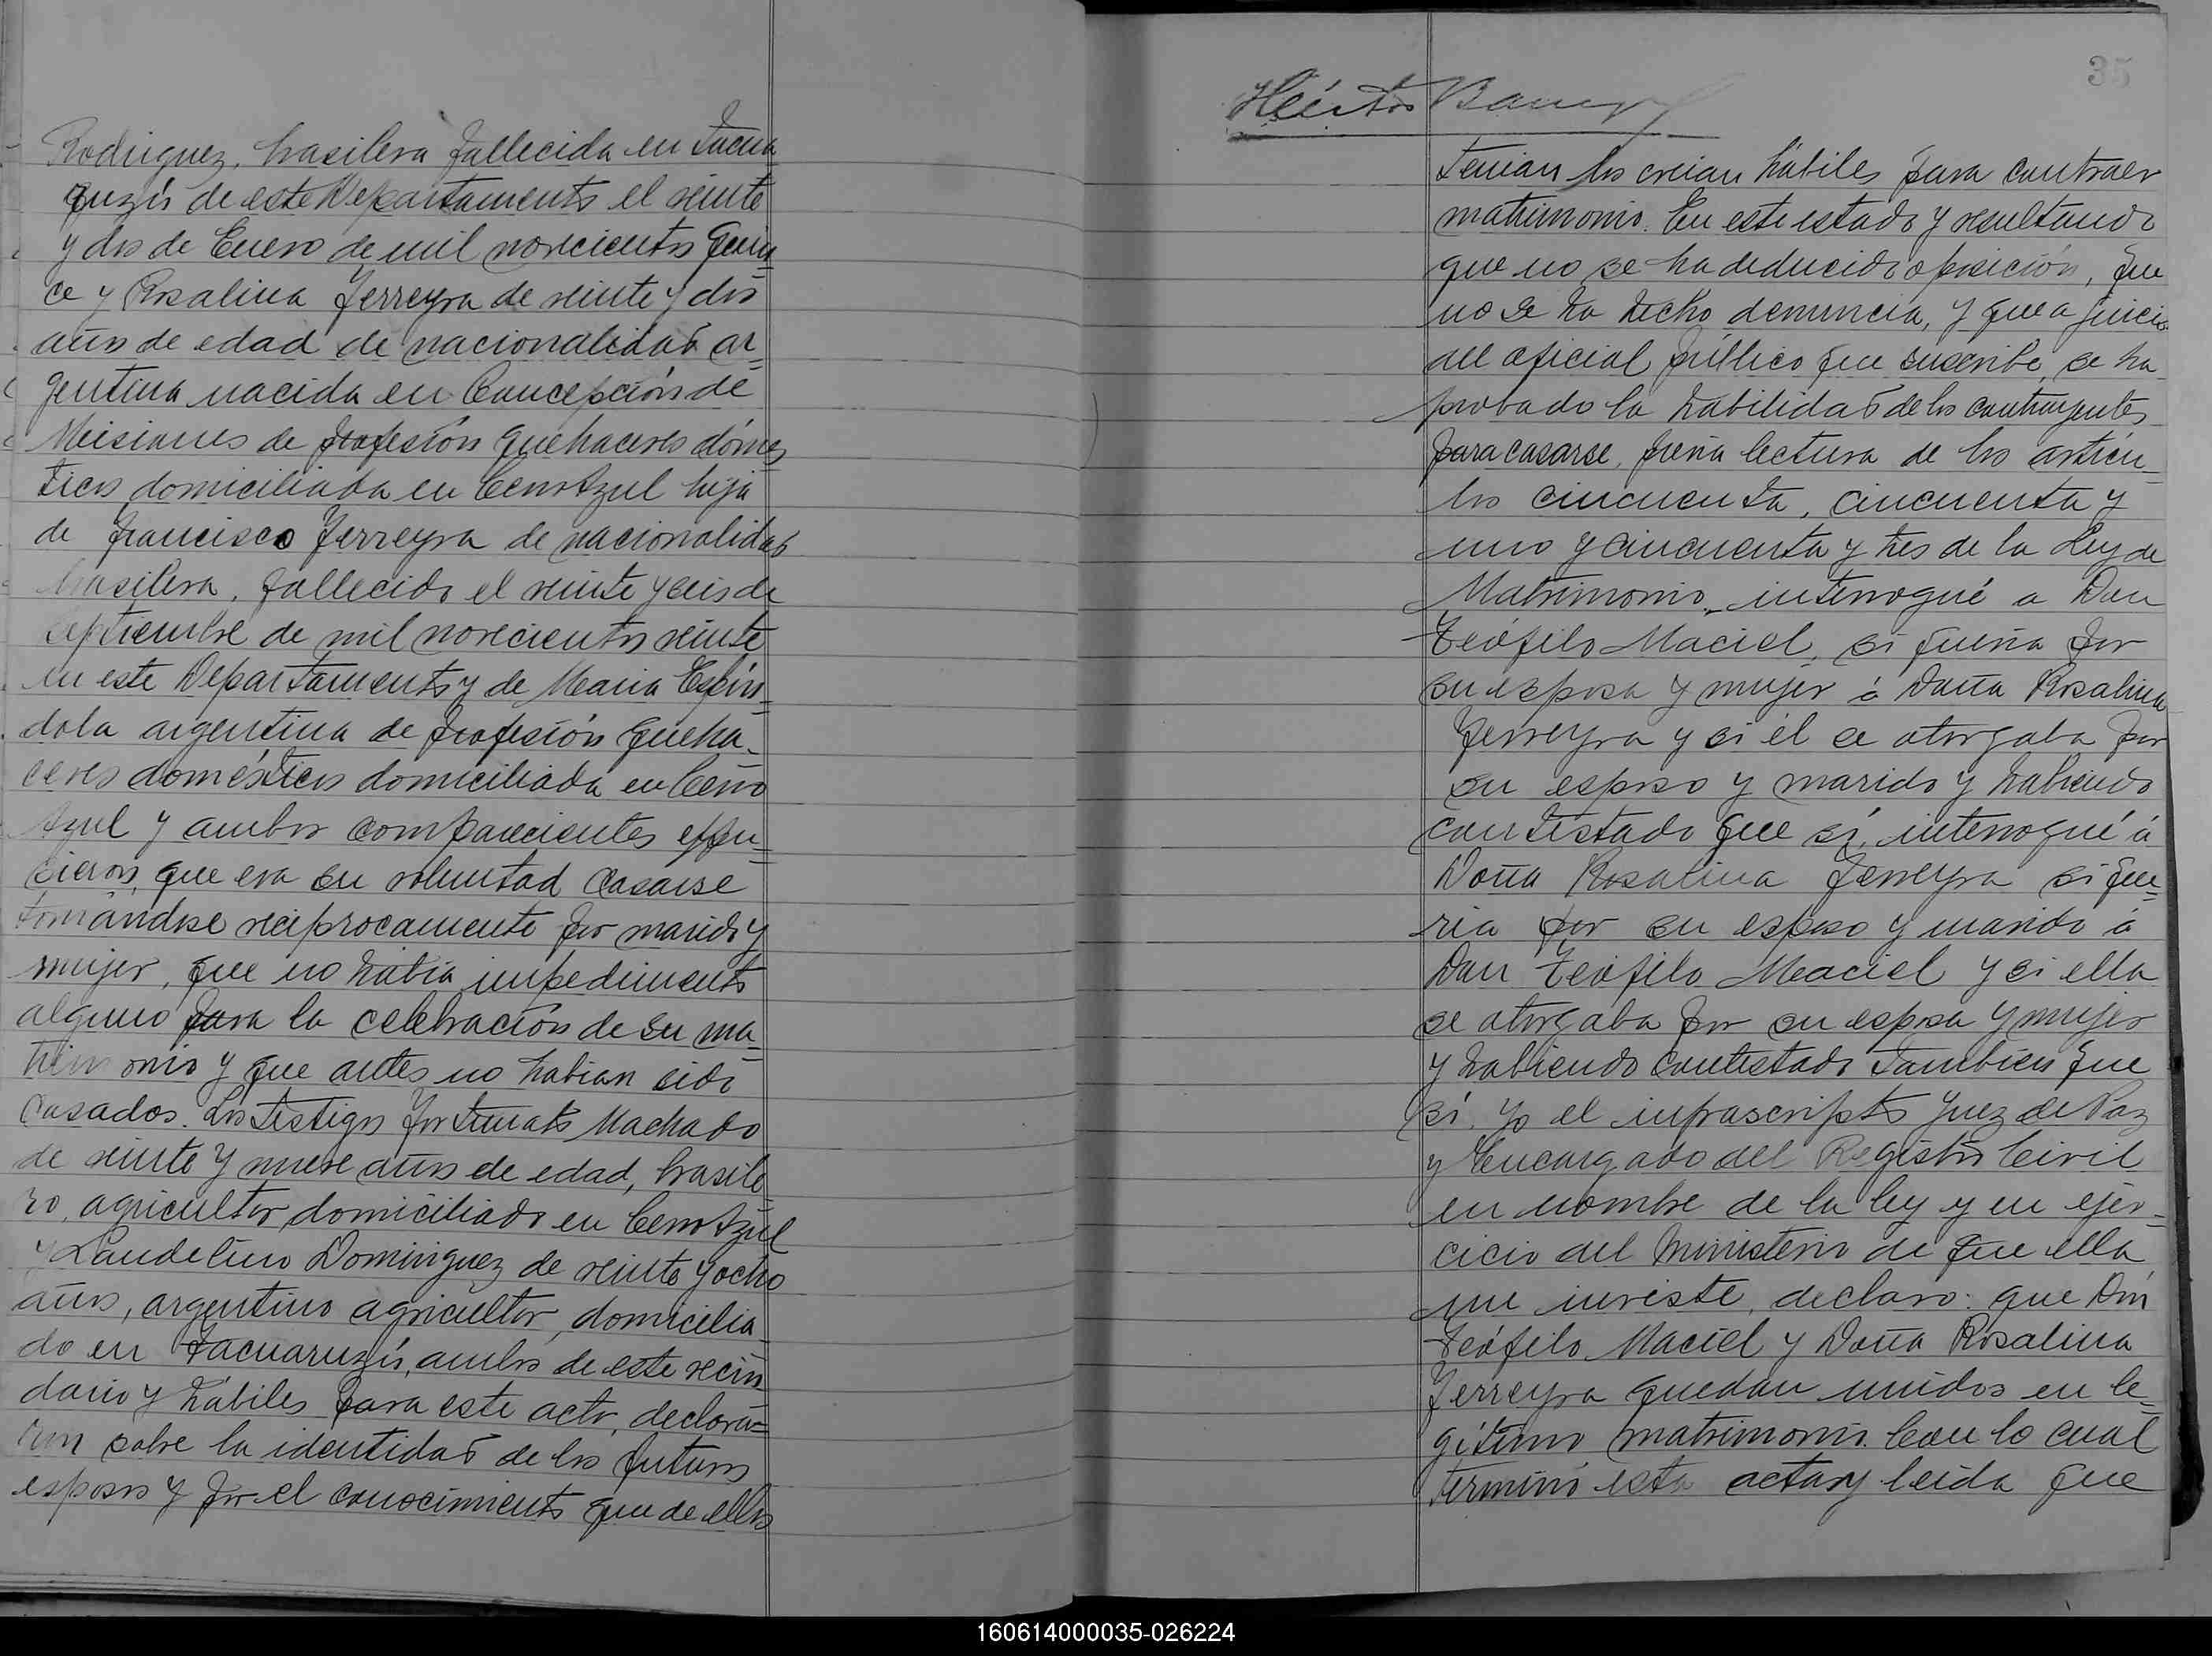 Rodriguez, brasilera fallecida en Tacua
ruzús de este Departamento el veinte
y dos de Enero de mil novecientos quin
ce y Rosalina Ferreyra de veinte y dos
años de edad de nacionalidad ar-
gentina nacida en Concepción de
Misiones de profesión quehaceres domes
ticos domiciliada en Cerro Azul hija
de Francisco Ferreyra de nacionalidad
brasilera, fallecido el veinte y seis de
Septiembre de mil novecientos veinte
en este Departamento y de Maria Espín-
dola argentina de profesión queha-
ceres domésticos domiciliada en Cerro
Azul y ambos comparecientes expu-
sieron, que era su voluntad casarse
tomándose reciprocamente por marido y
mujer, que no había impedimento
alguno para la celebración de su ma-
trimonio y que antes no habian sido
casados. Los testigos Fortunato Machado
de veinte y nueve años de edad, brasile
ro, agricultor domiciliado en Cerro Azul
y Laudelino Dominguez de veinte y ocho
años, argentino agricultor, domicilia-
do en Tacuaruzús, ambos de este vecin
dario y hábiles para este acto, declara-
ron sobre la identidad de los futuros
esposos y por el conocimiento que de ellos
35
Héctor
tenian los creian hábiles para contraer
matrimonio. En este estado y resultando
que no se ha deducido oposición, que
no se ha hecho denuncia, y que a juicio
del oficial público que suscribe, se ha
probado la habilidad de los contrayentes
para casarse, previa lectura de los articu-
los cincuenta, cincuenta y
uno y cincuenta y tres de la Ley de
Matrimonio, interrogué a Don
Teófilo Maciel, si queria por
su esposa y mujer á Doña Rosalina
Ferreyra y si él se otorgaba por
su esposo y marido y habiendo
contestado que sí, interrogué á
Doña Rosalina Ferreyra si que-
ria por su esposo y marido á
Don Teófilo Maciel y si ella
se otorgaba por su esposa y mujer
y habiendo contestado tambien que
sí. Yo el infrascripto Juez de Paz
y Encargado del Registro Civil
en nombre de la ley y en ejer-
cicio del ministerio de que ella
me inviste, declaro: que Don
Teófilo Maciel y Doña Rosalina
Ferreyra quedan unidos en le-
gítimo matrimonio. Con lo cual
terminó esta acta y leida que
160614000035-026224